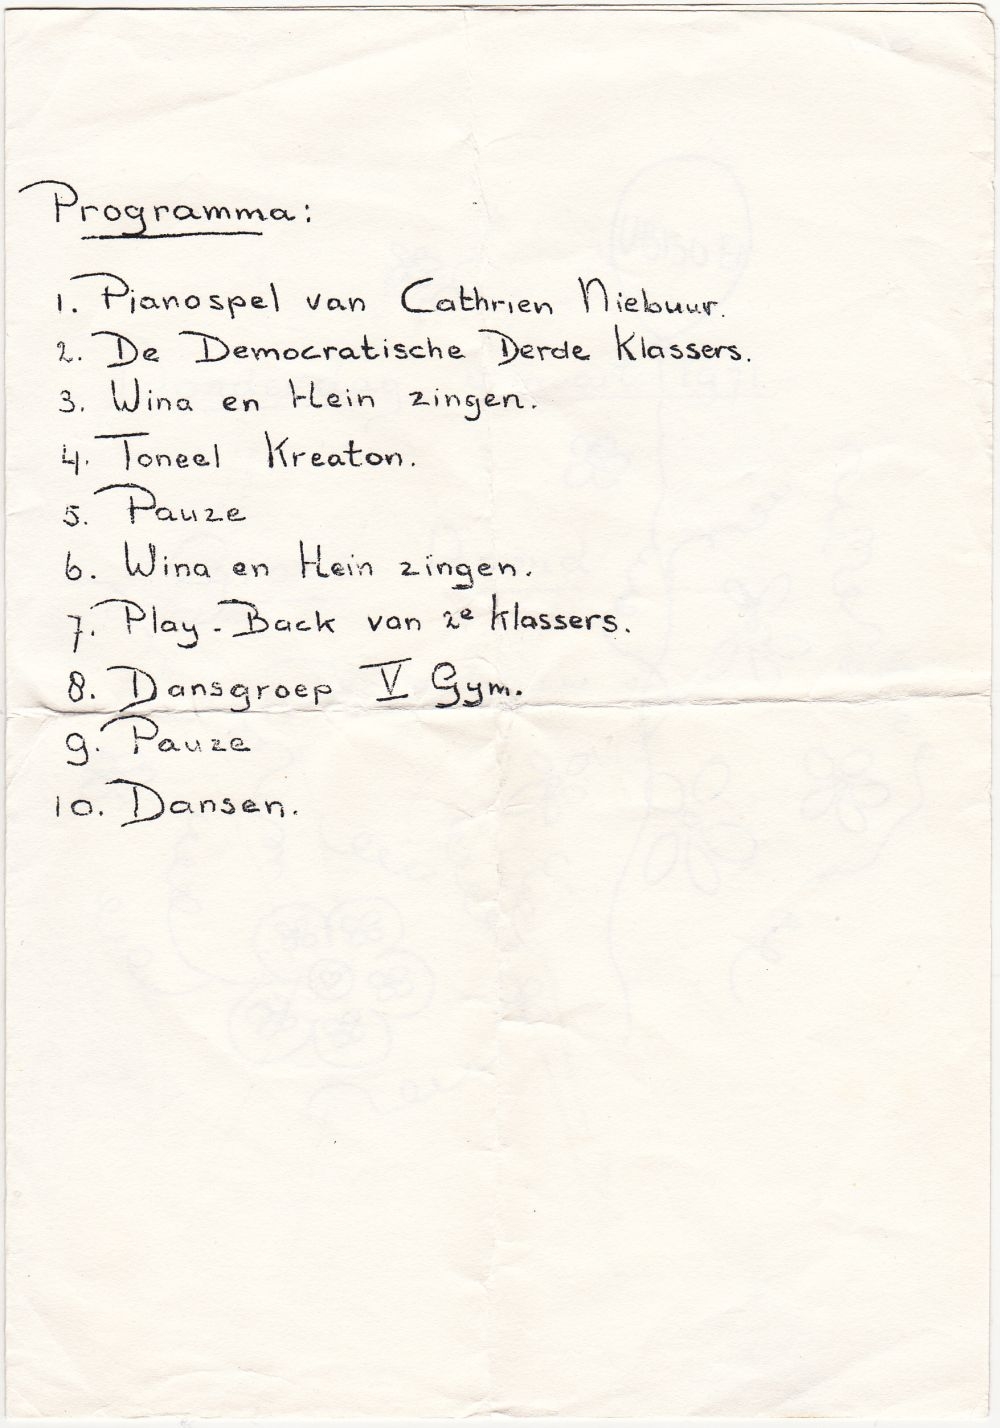 Programma:
1. Pianospel van Cathrien Niebuur.
2. De Democratische Derde Klassers.
3. Wina en Hein zingen.
4. Toneel Kreaton.
5. Pauze
6. Wina en Hein zingen.
7. Play-Back van 2e klassers.
8. Dansgroep V Gym.
9. Pauze
10. Dansen.